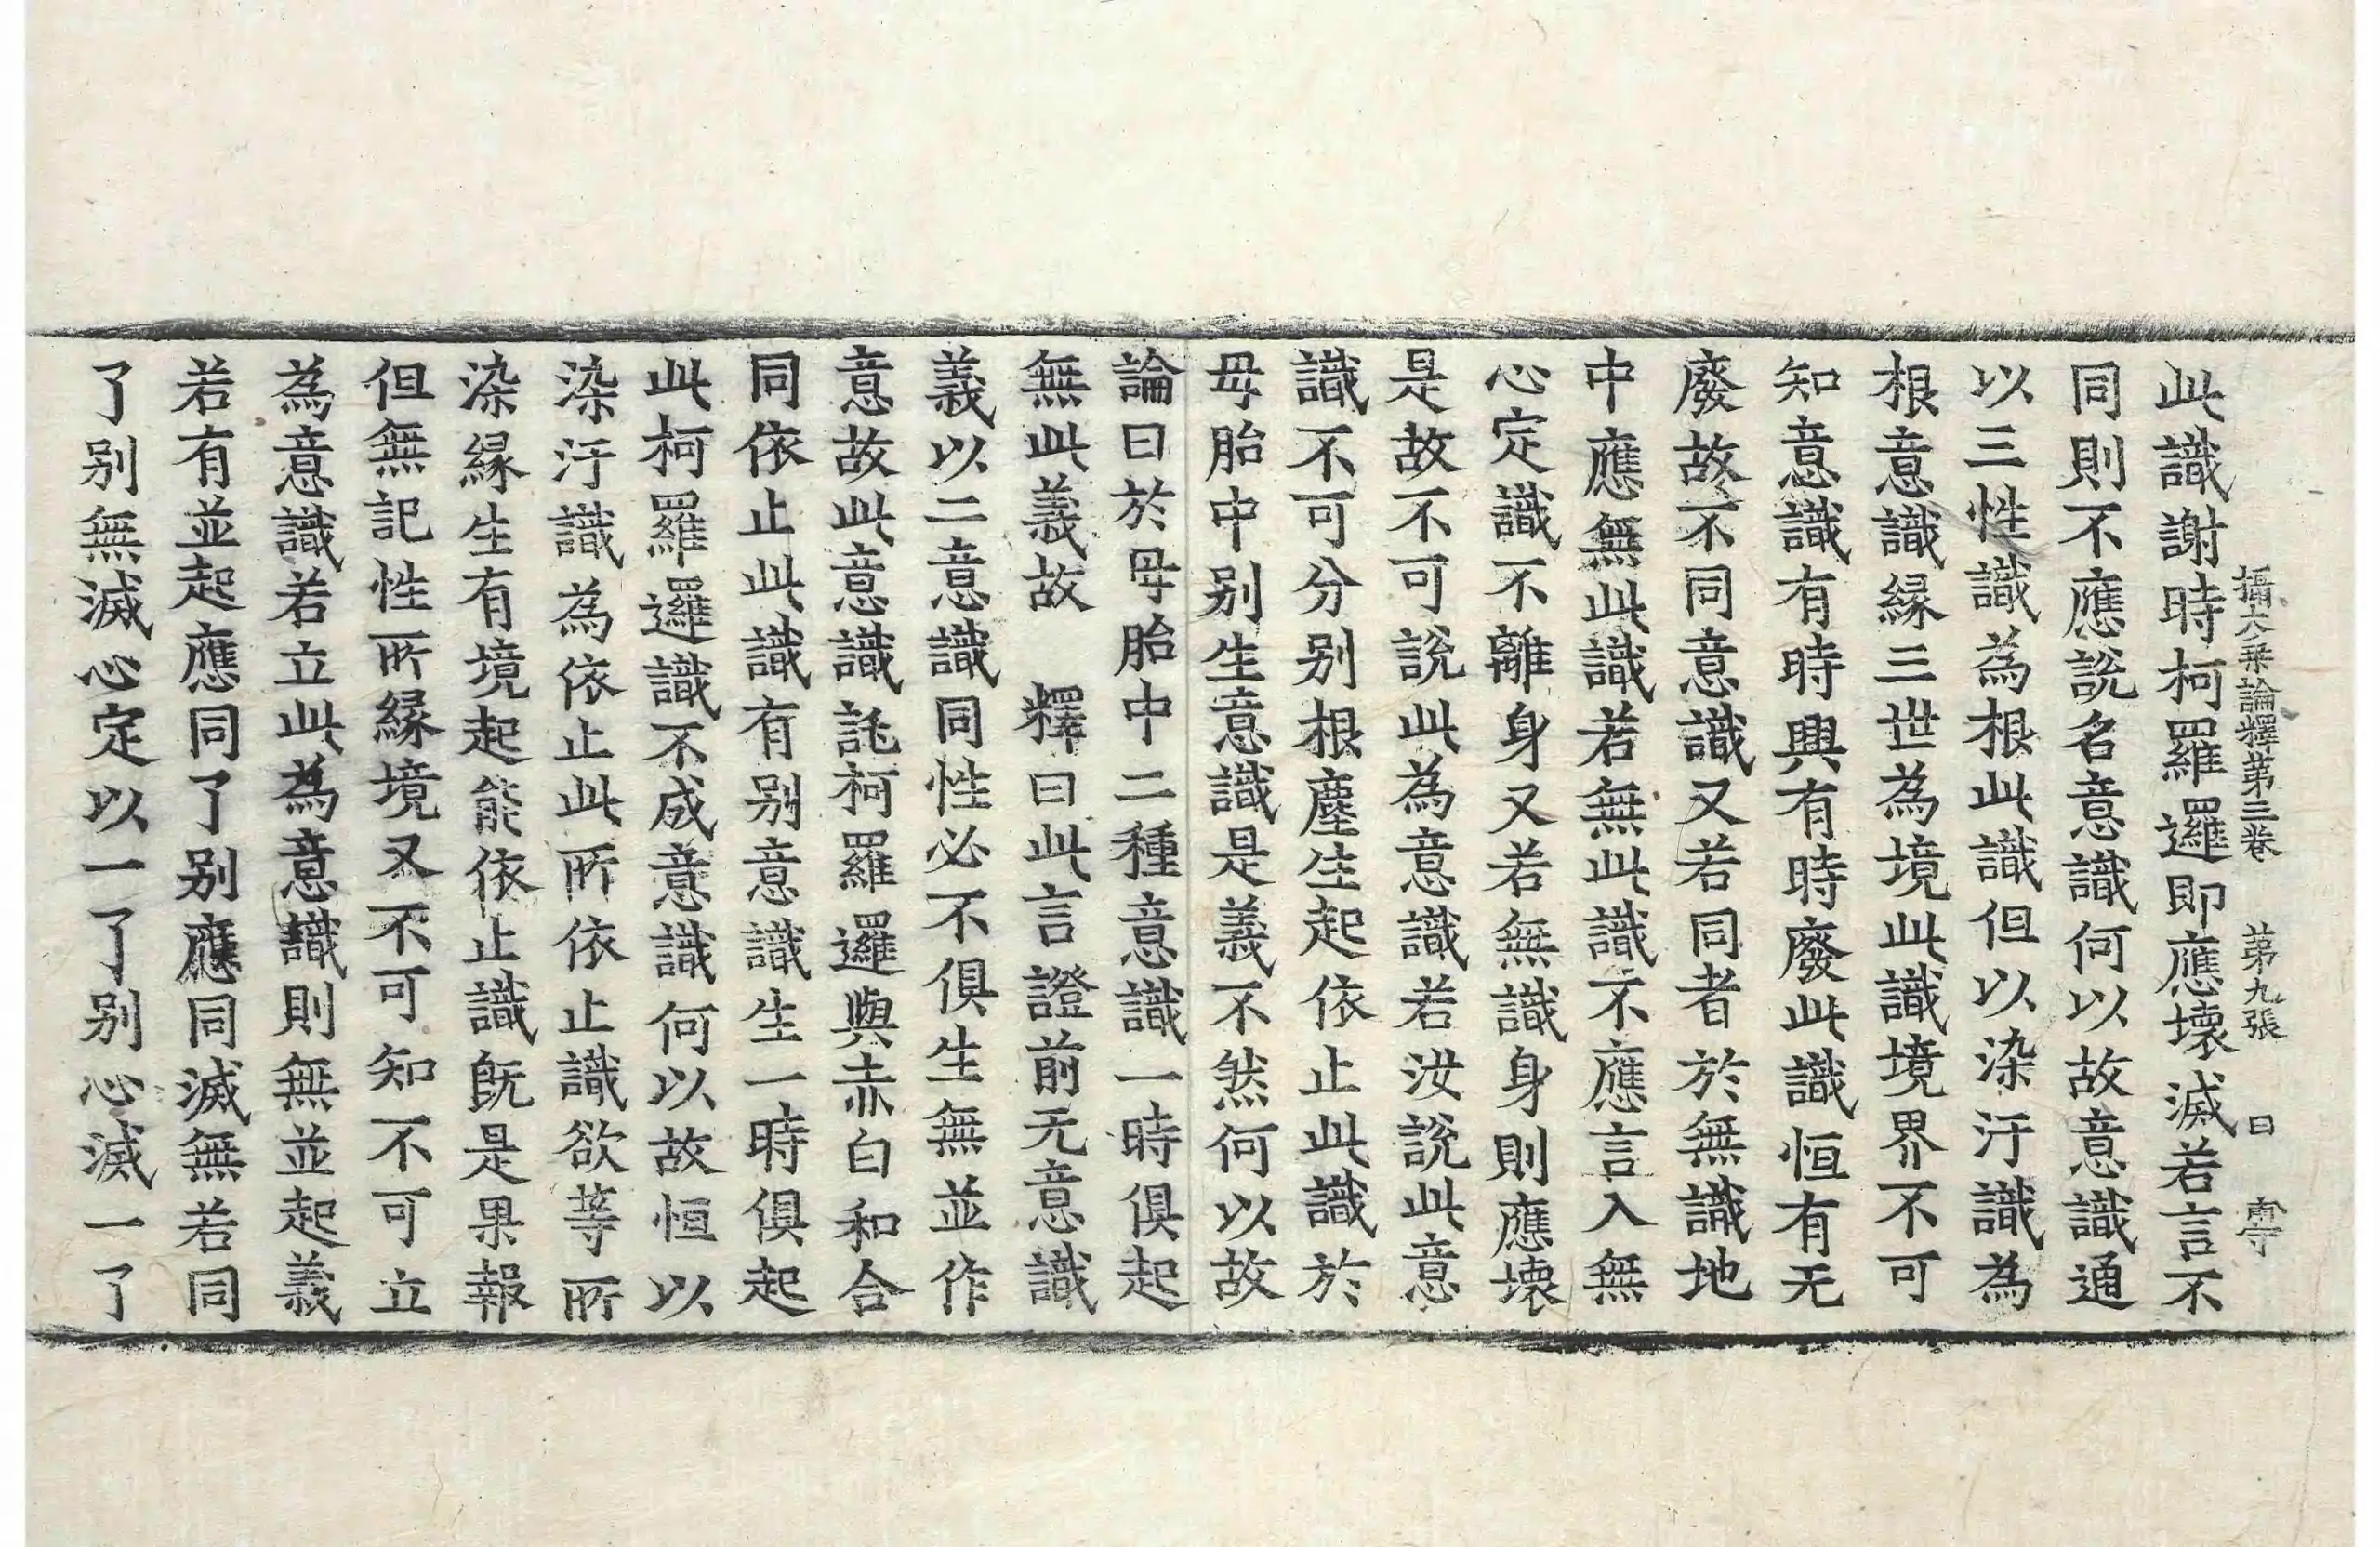 攝大乗論釋第三卷　第九張　曰　南守
此識謝時柯羅邏即應壞滅若言不
同則不應說名意識何以故意識通
以三性識為根此識但以染汙識為
根意識縁三世為境此識境界不可
知意識有時興有時廢此識恒有无
廢故不同意識又若同者於無識地
中應無此識若無此識不應言入無
心定識不離身又若無識身則應壞
是故不可說此為意識若汝說此意
識不可分别根塵生起依止此識於
母胎中别生意識是義不然何以故
論曰於母胎中二種意識一時俱起
無此義故　釋曰此言證前无意識
義以二意識同性必不俱生無並作
意故此意識託柯羅邏與赤白和合
同依止此識有别意識生一時俱起
此柯羅邏識不成意識何以故恒以
染汙識為依止此所依止識欲等所
染縁生有境起能依止識既是果報
但無記性所縁境又不可知不可立
為意識若立此為意識則無並起義
若有並起應同了别應同滅無若同
了别無滅心定以一了别心滅一了